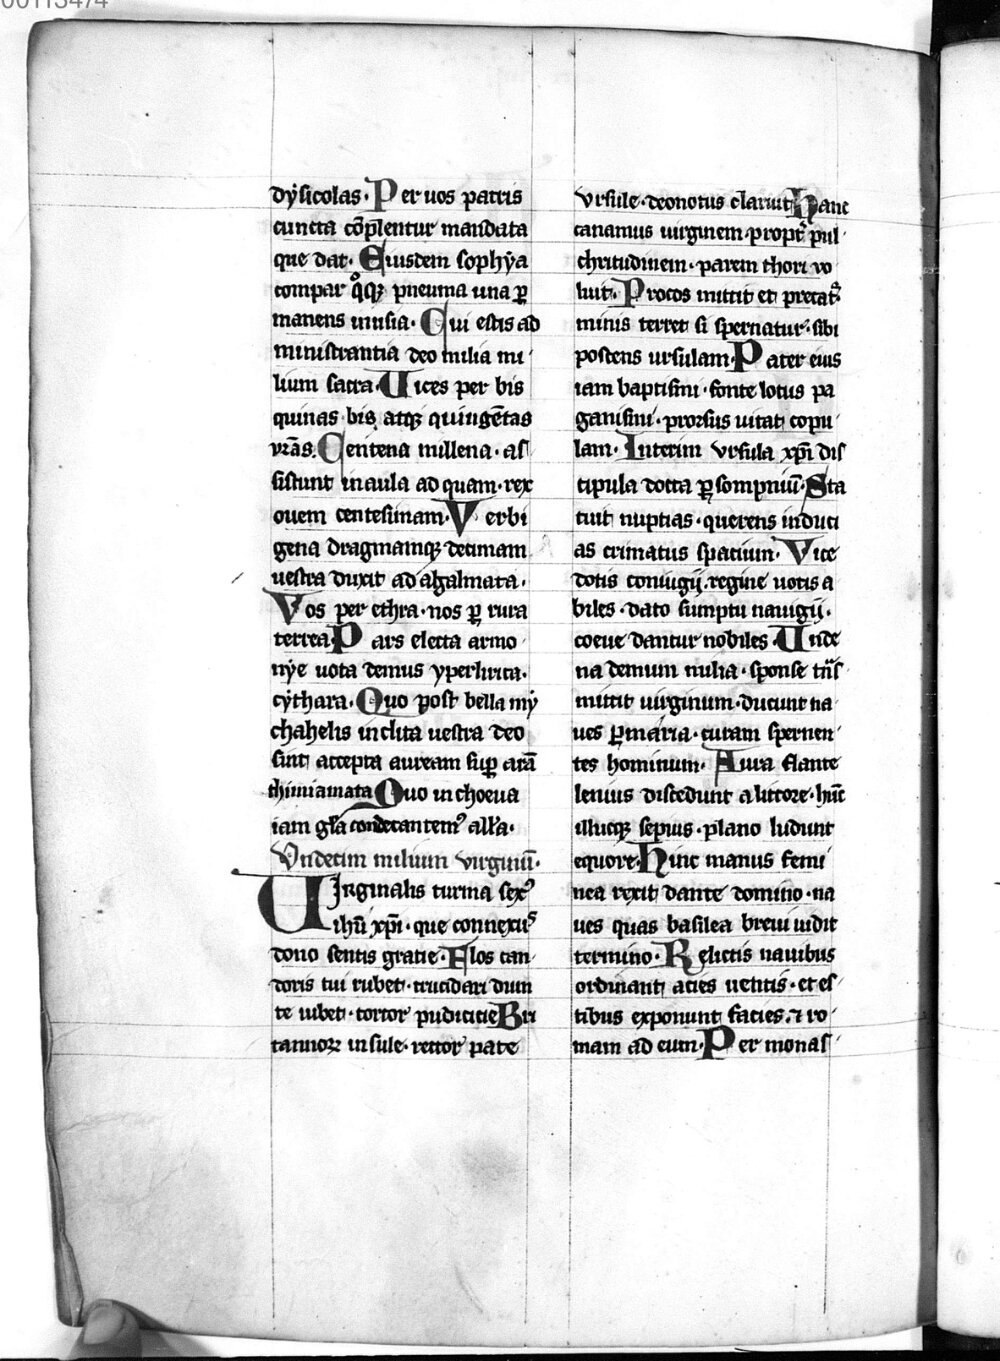 dẏsicolas· Per uos patris
cuncta cōplentur mandata
que dat· Eiusdem sophẏa
compar qͦqꝫ pneuma una ꝑ
manens in usia· Qui estis ad
ministrantia deo milia mi
lium sacra· Uices per bis
quinas bis atqꝫ quingētas
vrās· Centena millena· as
sistunt in aula ad quam· rex
ouem centesimam· Verbi
gena dragmamqꝫ decimam
uestra duxit ad algalmata·
Vos per ethra· nos ꝑ rura
terrea· Pars electa armo
nẏe uota demus yperlirica·
cẏthara· Quo post bella mẏ
chahelis inclita uestra deo
sint accepta auream suꝑ arā
thimiamata Quo in choeua
iam gl̄a condecantemꝰ all̄a·
Vndecim milium virginū·
Uirginalis turma sexꝰ
ihū xp̄i· que connexuꝰ
dono sentis gratie· Flos can
doris tui rubet· trucidari dum
te iubet· tortor pudicicie Bri
tannoꝝ insule· rector pate
vrsule· deonotus claruit Hanc
canamus uirginem· propt̄ pul
chritudinem· parem thori vo
luit· Procos mittit et precatꝰ
minis terret si spernatur· sibi
poscens ursulam· Pater eius
iam baptismi· fonte lotus pa
ganismi· prorsus uitat copu
lam· Interim vrsula xp̄i dis
cipula docta ꝑ sompniū· Sta
tuit nuptias· querens induci
as trimatus spatium· Vice
dotis coniugij· regine uotis a
biles· dato sumptu nauigij·
coeue dantur nobiles· Unde
na demum milia· sponse
mittit uirginum· ducunt na
ues ꝑ maria· curam spernen
tes hominum· Aura flante
lenius discedunt a littore· huc
illucqꝫ sepius· plano ludunt
equore· Hinc manus femi
nea rexit dante domino· na
ues quas basilea breui uidit
termino· Relictis nauibus
ordinant acies uentis· et es
tibus exponunt facies· ⁊ ro
mam ad eunt· Per monas